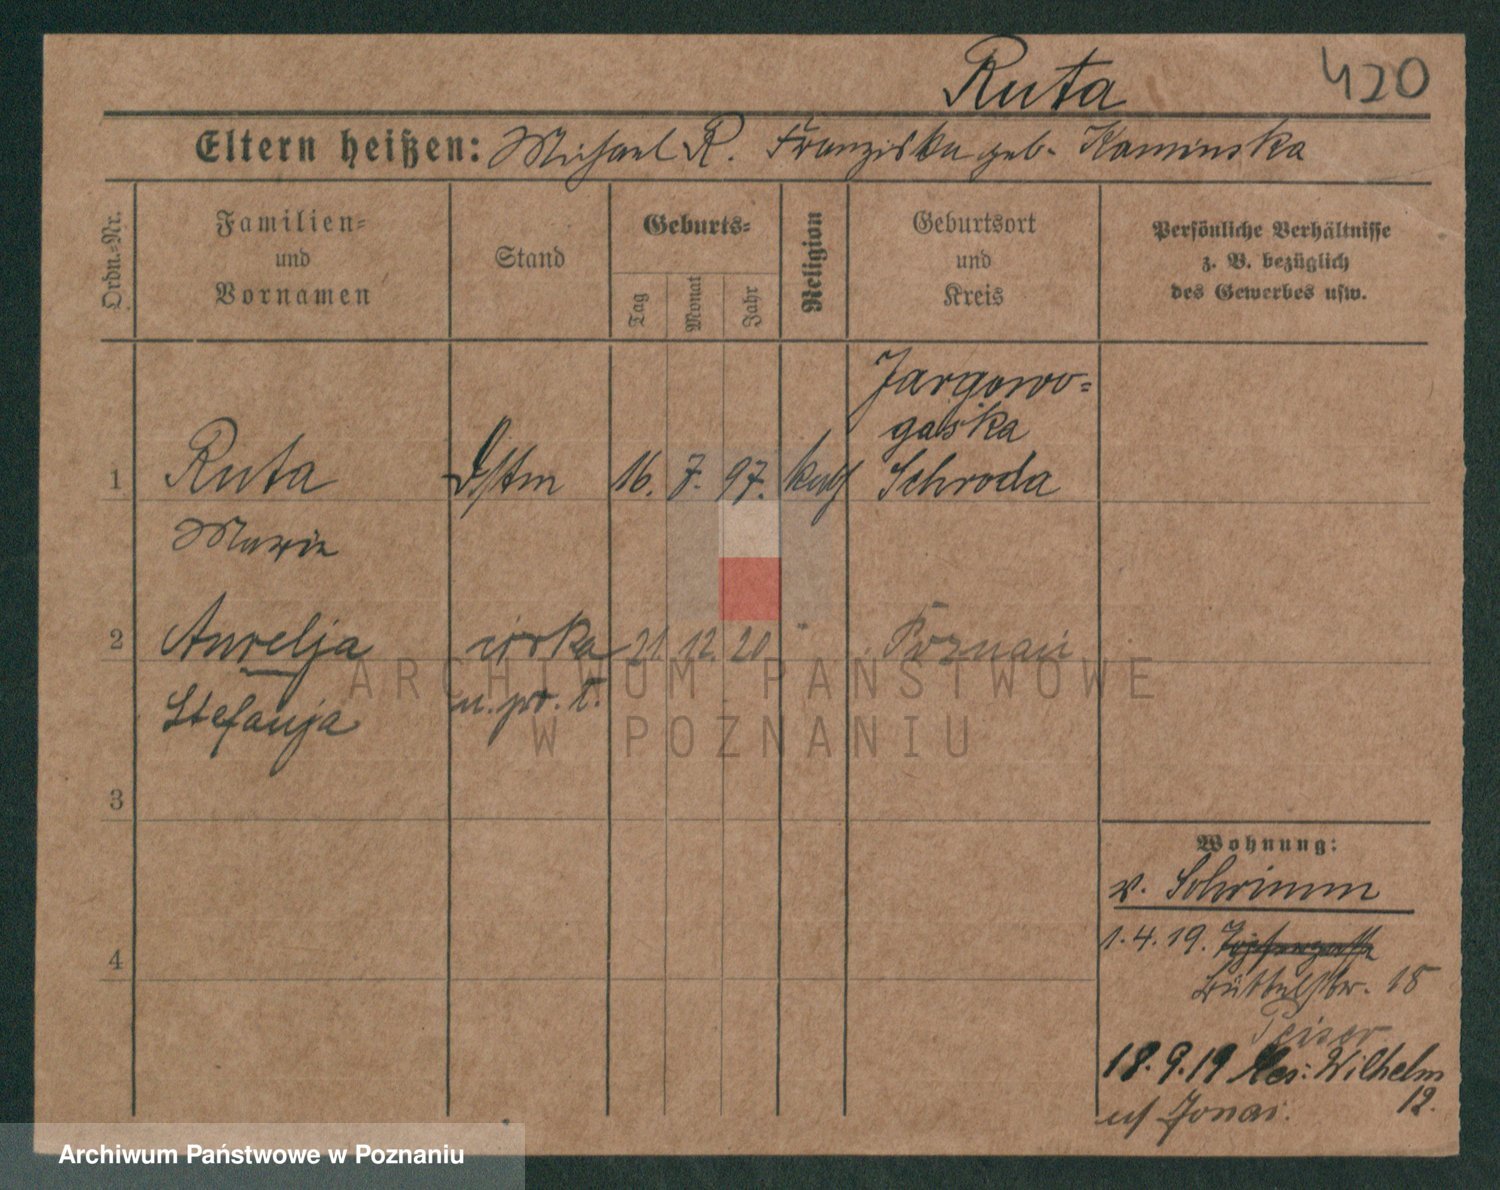 Ruta
420
Eltern heißen: Michael R. Franziska geb. Kaminska
Ordn.-Nr.
Familien-
und
Vornamen
Stand
Geburts-
Tag
Monat
Jahr
Religion
Geburtsort
und
Kreis
Persönliche Verhältnisse
z. B. bezüglich
des Gewerbes usw.
Jargowo-
gaska
1 Ruta Dstm 16. 7. 97. kath Schroda
Marie
2 Aurelja córka 21. 12. 20 " Poznań
Stefanja
3
4
Wohnung:
v. Schrimm
1.4.19.
Büttelstr. 18
Peiser
18.9.19 Wilhelm
12.
b/ Jonas.
ARCHIWUM PAŃSTWOWE
W POZNANIU
Archiwum Państwowe w Poznaniu